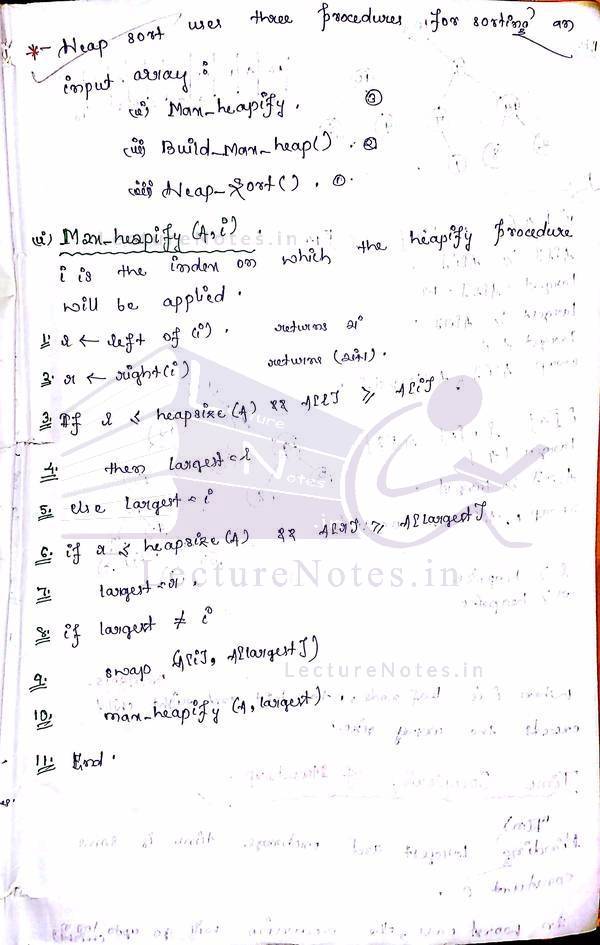 *- Heap sort uses three procedures for sorting an
input array :
(i) Max_heapify. ③
(ii) Build_Max_heap(). ②
(iii) Heap_Sort(). ①
LectureNotes.in
(i) Max_heapify (A,i).
i is the index on which the heapify procedure
will be applied.
1. l ← left of (i). returns 2i
2. r ← right(i) returns (2i+1).
3. If l ≤ heapsize(A) && A[l] ≥ A[i].
Lecture
4. then largest = l
Notes
5. else largest = i
6. if r ≤ heapsize(A) && A[r] ≥ A[largest].
LectureNotes.in
7. largest = r.
8. if largest ≠ i
9. swap (A[i], A[largest])
LectureNotes.in
10. max_heapify (A, largest).
11. End.